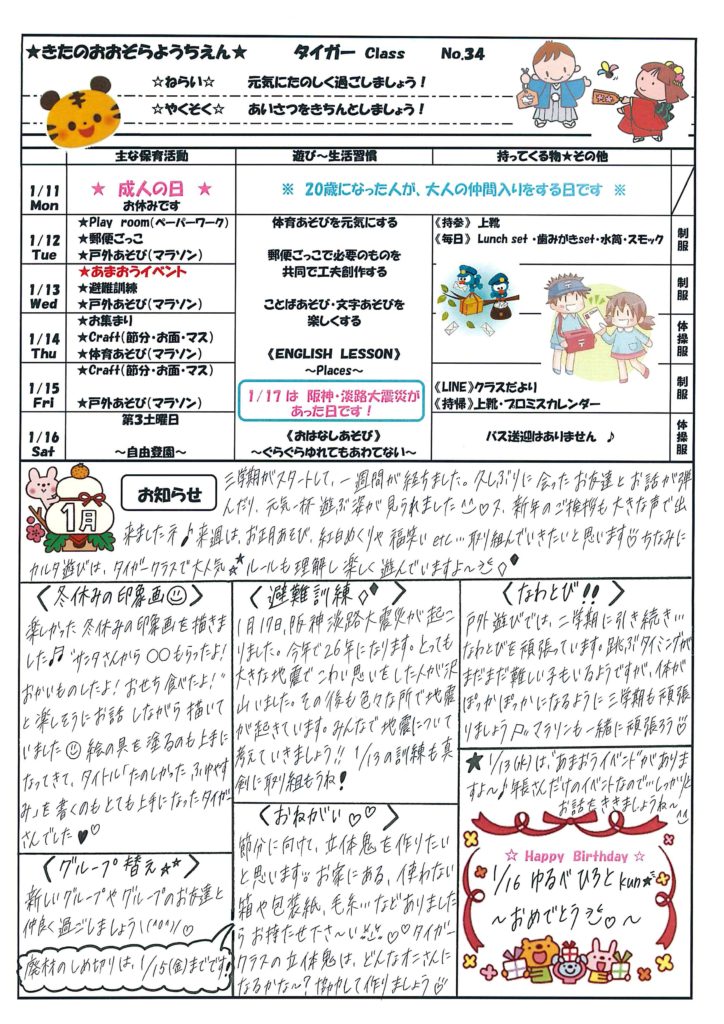 ★きたのおおぞらようちえん★ タイガー Class No.34
☆ねらい☆ 元気にたのしく過ごしましょう！
☆やくそく☆ あいさつをきちんとしましょう！
主な保育活動 遊び～生活習慣 持ってくる物★その他
1/11 Mon
★ 成人の日 ★
お休みです
※ 20歳になった人が、大人の仲間入りをする日です ※
1/12 Tue
★Play room(ペーパーワーク)
★郵便ごっこ
★戸外あそび(マラソン)
体育あそびを元気にする
郵便ごっこで必要のものを
共同で工夫創作する
《持参》上靴
《毎日》Lunch set・歯みがきset・水筒・スモック
制服
1/13 Wed
★あまおうイベント
★避難訓練
★戸外あそび(マラソン)
ことばあそび・文字あそびを
楽しくする
制服
1/14 Thu
★お集まり
★Craft(節分・お面・マス)
★体育あそび(マラソン)
《ENGLISH LESSON》
～Places～
体操服
1/15 Fri
★Craft(節分・お面・マス)
★戸外あそび(マラソン)
1/17は 阪神・淡路大震災が
あった日です！
《LINE》クラスだより
《持帰》上靴・プロミスカレンダー
制服
1/16 Sat
第3土曜日
～自由登園～
《おはなしあそび》
～ぐらぐらゆれてもあわてない～
バス送迎はありません ♪
体操服
1月
お知らせ
三学期がスタートして、一週間が経ちました。久しぶりに会ったお友達とお話が弾
んだり、元気一杯遊ぶ姿が見られました^^♡又、新年のご挨拶も大きな声で出
来ましたネ♪来週は、お正月あそび、紅白めくりや福笑いetc…取り組んでいきたいと思います♡ちなみに
カルタ遊びは、タイガークラスで大人気☆★ルールも理解し楽しく遊んでいますよ～
〈冬休みの印象画☺〉
楽しかった冬休みの印象画を描きま
した♫"サンタさんから○○もらったよ！
おかいものしたよ！おせち食べたよ！"
と楽しそうにお話しながら描いて
いました☺絵の具を塗るのも上手に
なってきて、タイトル「たのしかった ふゆやす
み」を書くのもとても上手になったタイガー
さんでした♥♡
〈グループ替え☆★〉
新しいグループやグループのお友達と
仲良く過ごしましょう\(^o^)/♡
廃材のしめ切りは、1/15(金)までです!
〈避難訓練◇◆〉
1月17日、阪神淡路大震災が起こ
りました。今年で26年になります。とっても
大きな地震でこわい思いをした人が沢
山いました。その後も色々な所で地震
が起きています。みんなで地震について
考えていきましょう!! 1/13の訓練も真
剣に取り組もうね！
〈おねがい♡♡〉
節分に向けて、立体鬼を作りたい
と思います。お家にある、使わない
箱や包装紙、毛糸…などありました
らお持たせ下さ～い♡♡タイガー
クラスの立体鬼は、どんなオニさんに
なるかな～？協力して作りましょう
〈なわとび!!〉
戸外遊びでは、二学期に引き続き…
なわとびを頑張っています。跳ぶタイミングが
まだまだ難しい子もいるようですが、体が
ぽっかぽっかになるように三学期も頑張
りましょう♫マラソンも一緒に頑張ろう♡
★1/13(水)は、"あまおうイベント"がありま
すよ～♪年長さんだけのイベントなので…しっかりと
お話をききましょうね～^^
☆ Happy Birthday ☆
1/16 ゆるべ ひろと kun★
～おめでとう♡～